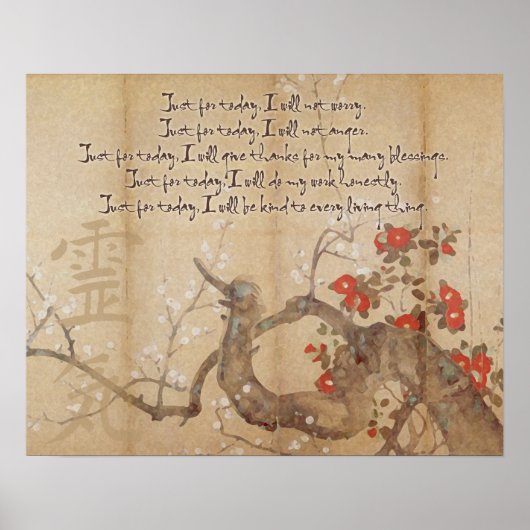 Just for today, I will not worry.
Just for today, I will not anger.
Just for today, I will give thanks for my many blessings.
Just for today, I will do my work honestly.
Just for today, I will be kind to every living thing.
靈
気